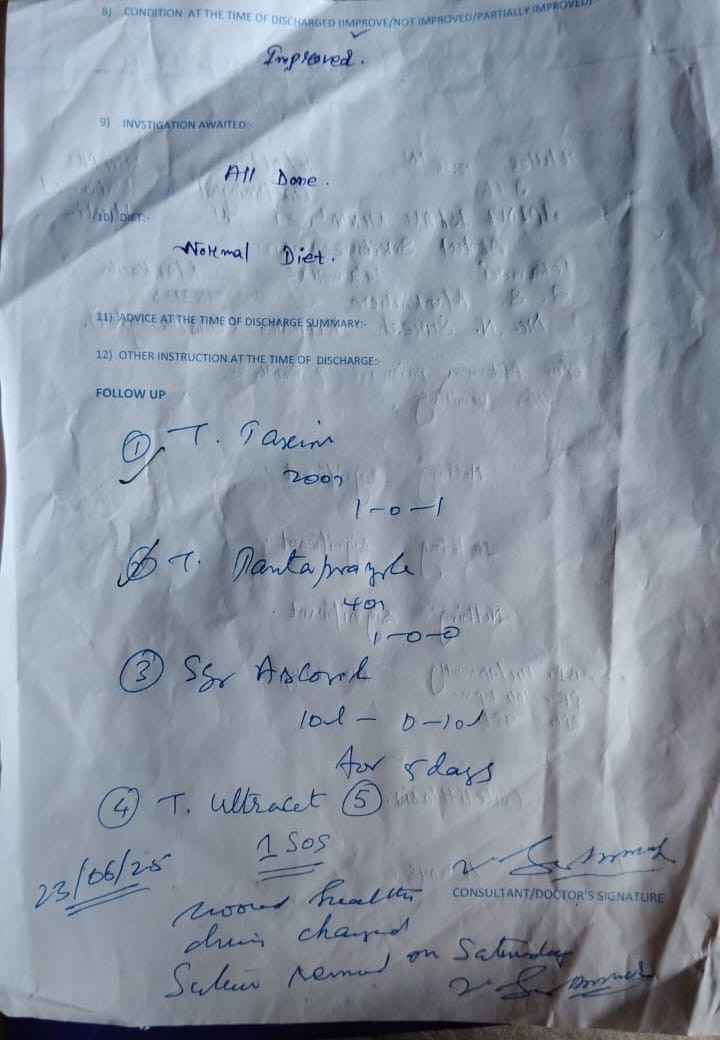 8) CONDITION AT THE TIME OF DISCHARGED (IMPROVE/NOT IMPROVED/PARTIALLY IMPROVED)
Improved.
9) INVSTIGATION AWAITED:-
All Done.
10) DIET:-
Normal Diet.
11) ADVICE AT THE TIME OF DISCHARGE SUMMARY:-
12) OTHER INSTRUCTION AT THE TIME OF DISCHARGE:-
FOLLOW UP
① T. Taxim
200
1-0-1
② T. Pantaprazole
40
1-0-0
③ Syr Ascoril
10 - 0-10
for 5 days
④ T. Ultracet ⑤
1 SOS
23/06/25
CONSULTANT/DOCTOR'S SIGNATURE
wound healthy
changed
on Saturday